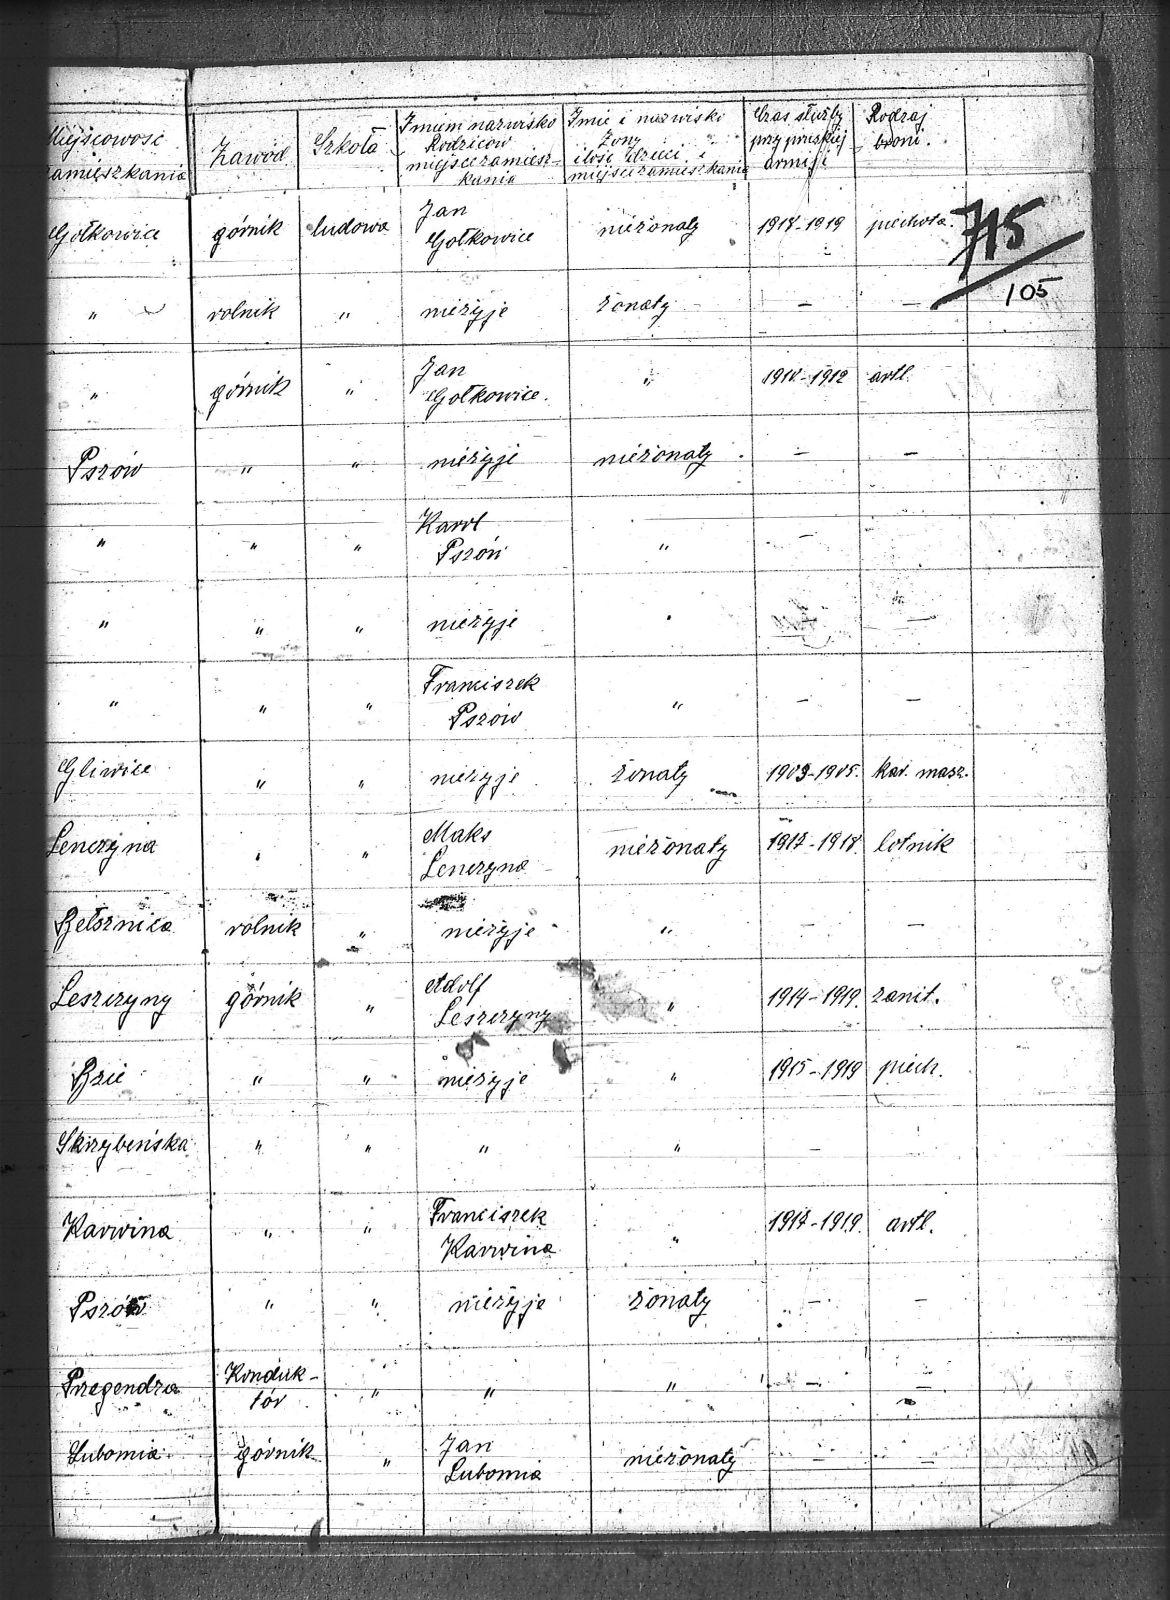 Miejscowość zamieszkania Zawód Szkoła Imiem nazwisko Rodziców miejsce zamieszkania Imie i nazwisko Żony ilość dzieci i miejsce zamieszkania Czas służby przy pruskiej armiji Rodzaj broni.
Gołkowice górnik ludowa Jan Gołkowice nieżonaty 1918-1919 piechota.
715
105
" rolnik " nieżyje żonaty — —
" górnik " Jan Gołkowice. " 1910-1912 artl.
Pszów " " nieżyje nieżonaty — —
" " " Karol Pszów " —
" " " nieżyje " —
" " " Franciszek Pszów " — —
Gliwice " " nieżyje żonaty 1903-1905. kar. masz.
Lenczyna " " Maks Lenczyna nieżonaty 1917-1918. lotnik
Bełsznica rolnik " nieżyje " — —
Leszczyny górnik " Adolf Leszczyny " 1914-1919. sanit.
Bzie " " nieżyje " 1915-1919 piech.
Skrzybeńska " " " " — —
Karwina " " Franciszek Karwina " 1917-1919. artl.
Pszów " " nieżyje żonaty — —
Przegendza Konduktór " " " — —
Lubomia górnik " Jan Lubomia nieżonaty — —